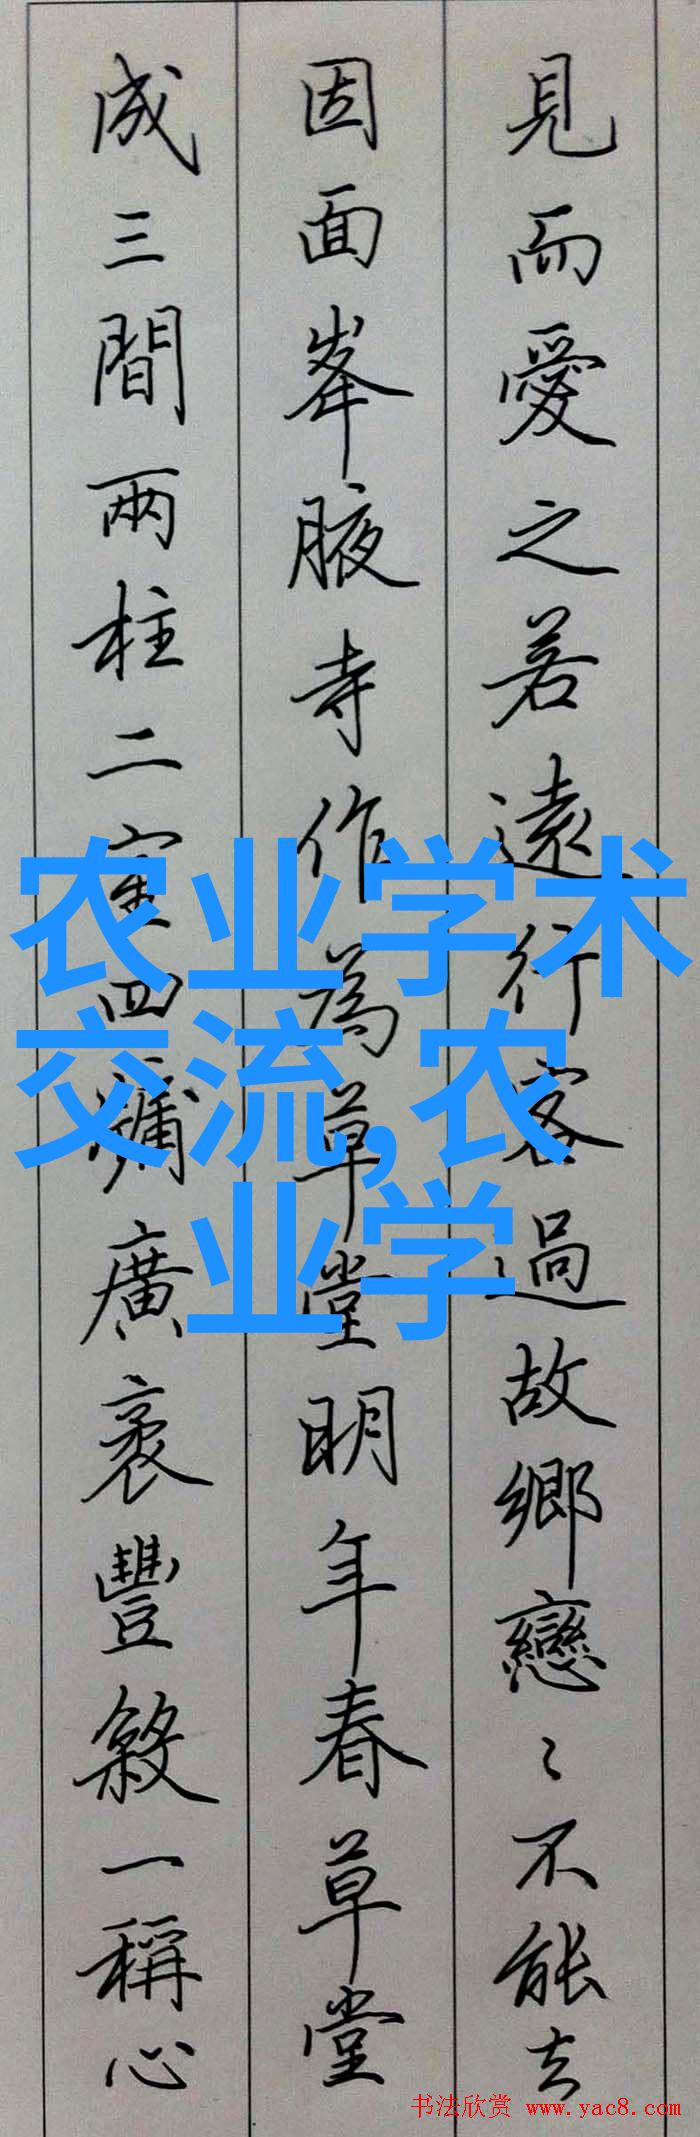 見而愛之若遠行客過故鄉戀〻不能去
因面峯腋寺作為草堂明年春草堂
成三間兩柱二室四牖廣袤豐殺一稱心
农业学术
交流,农
业学
书法欣赏 www.yac8.com